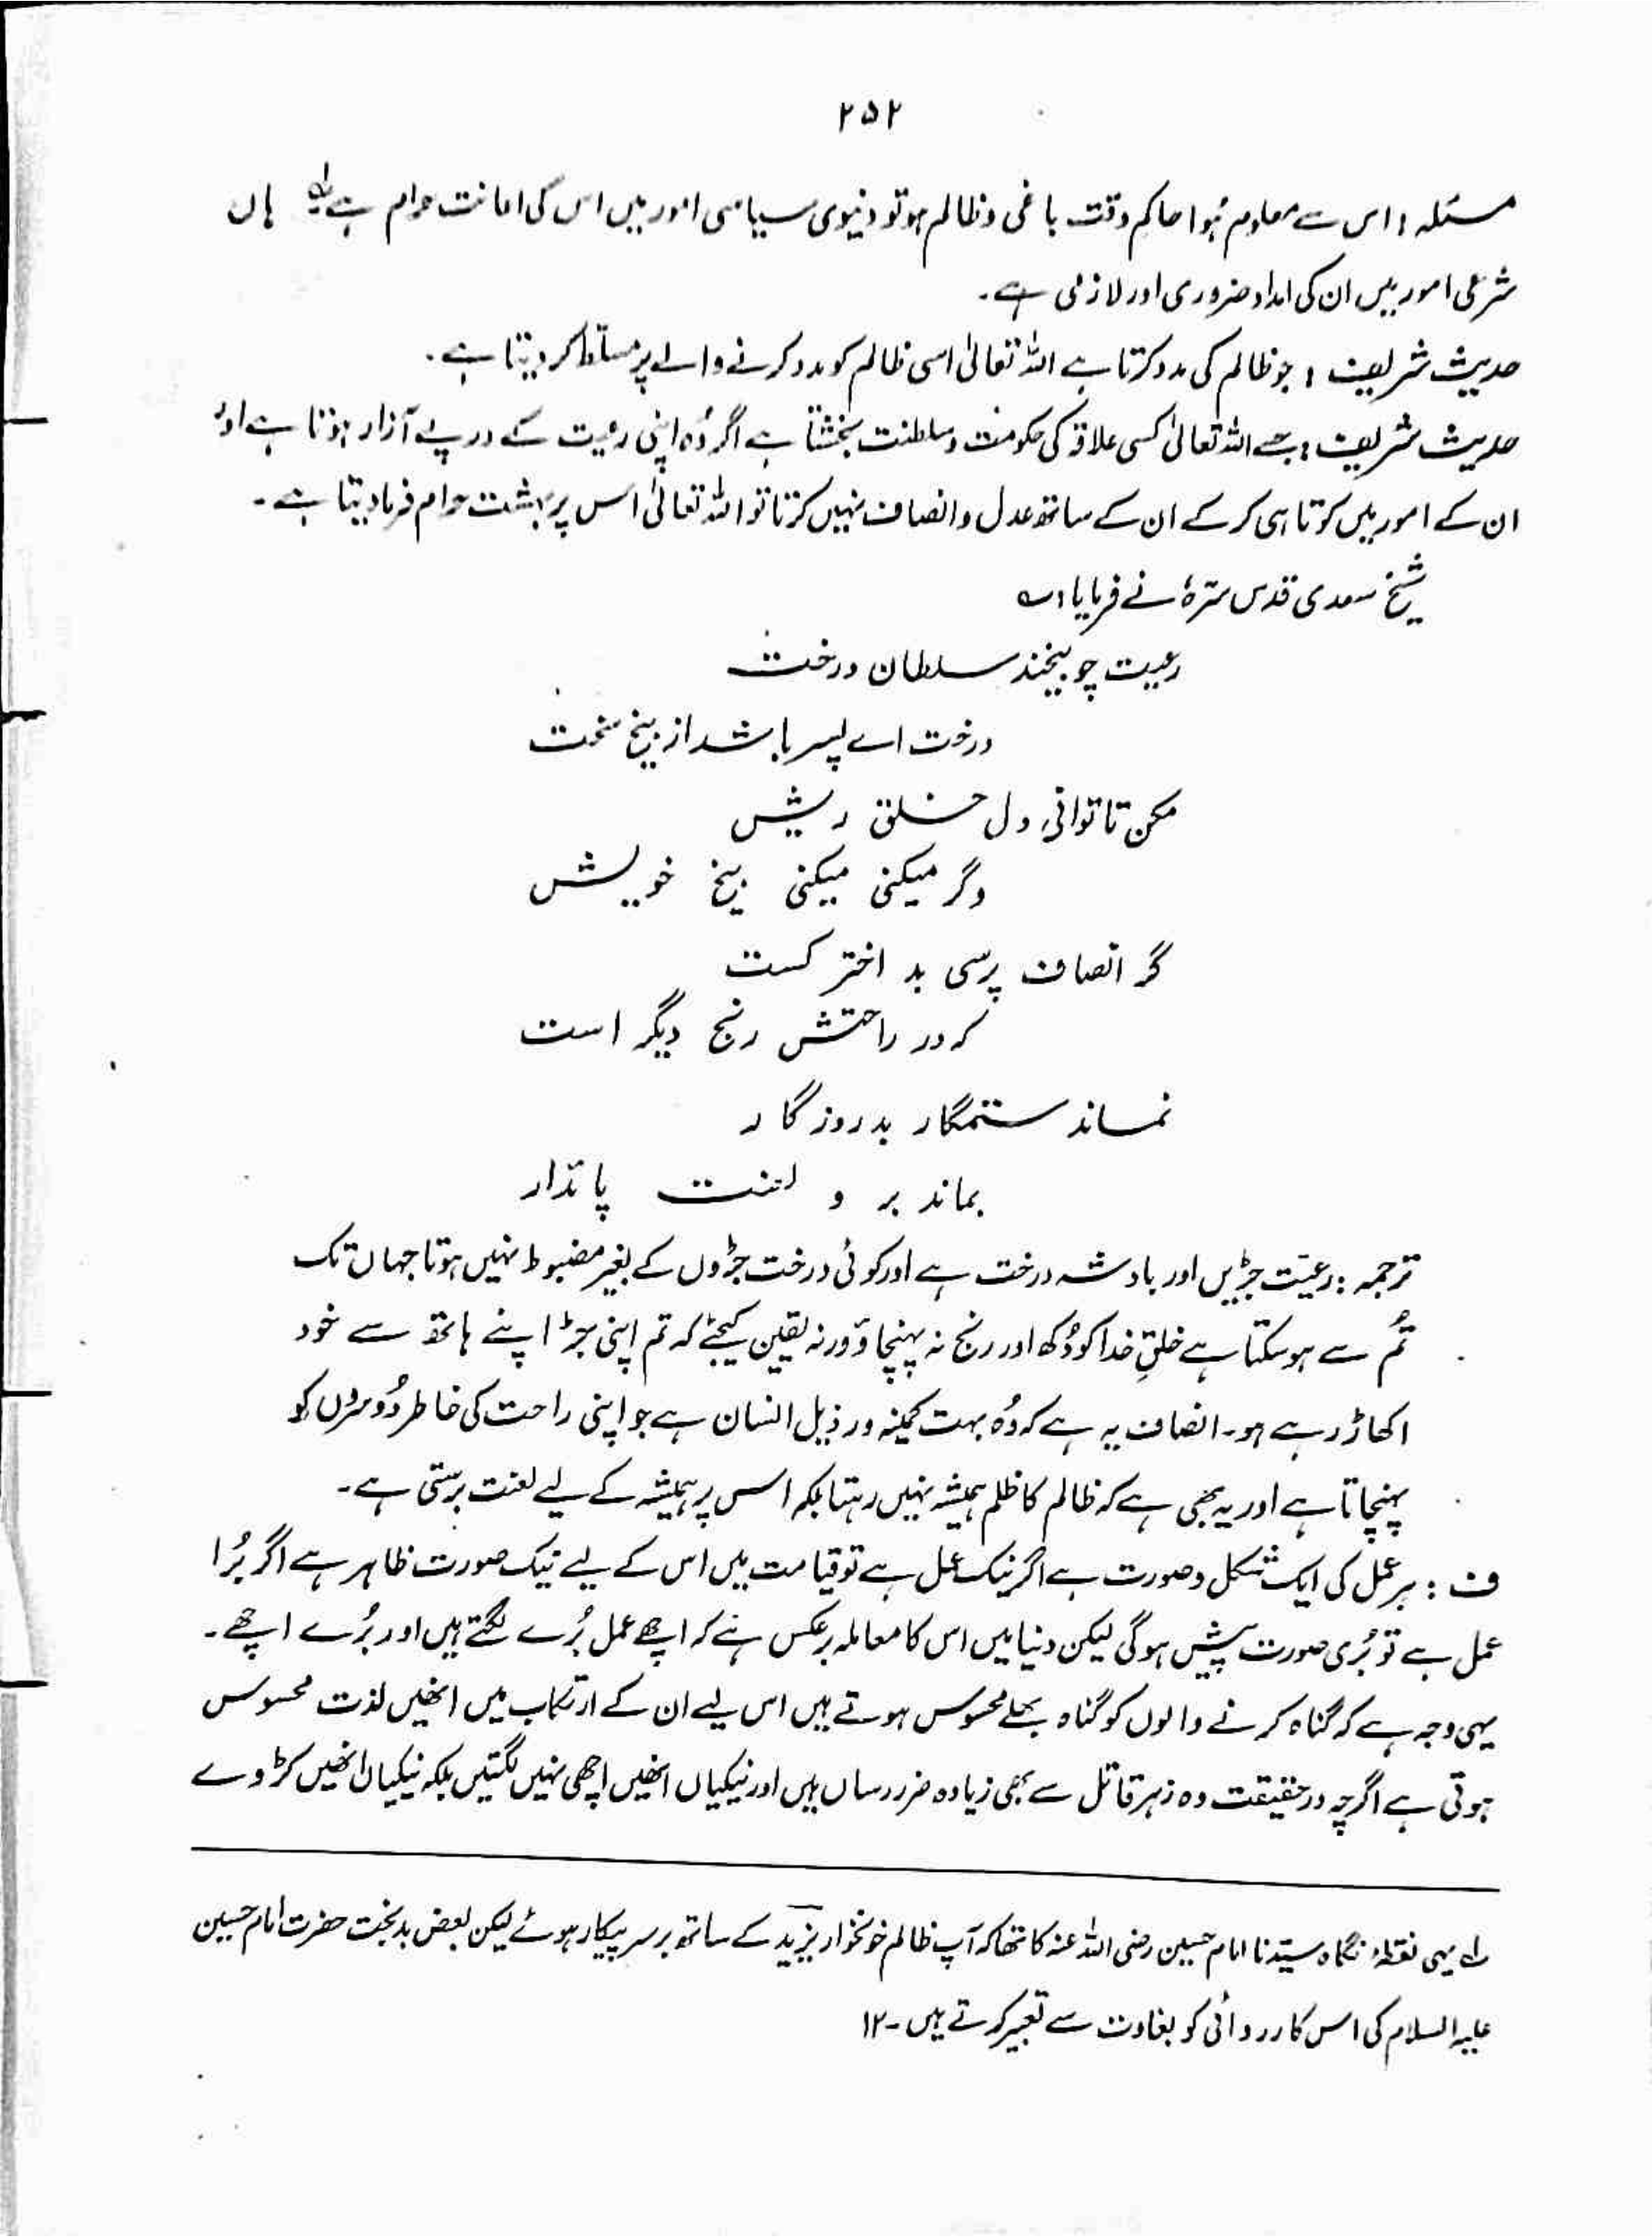 ۲۵۲
مسئلہ : اس سے معلوم ہُوا حاکم وقت باغی و ظالم ہو تو دنیوی سیاسی امور میں اس کی اعانت حرام ہے لہ ہاں
شرعی امور میں ان کی امداد ضروری اور لازمی ہے۔
حدیث شریف : جو ظالم کی مدد کرتا ہے اللہ تعالیٰ اسی ظالم کو مدد کرنے والے پر مسلّط کر دیتا ہے۔
حدیث شریف : جسے اللہ تعالیٰ کسی علاقہ کی حکومت و سلطنت بخشتا ہے اگر وُہ اپنی رعیت کے درپے آزار ہوتا ہے اور
ان کے امور میں کوتاہی کر کے ان کے ساتھ عدل و انصاف نہیں کرتا تو اللہ تعالیٰ اس پر بہشت حرام فرما دیتا ہے۔
شیخ سعدی قدس سرّہٗ نے فرمایا : ؎
رعیت چو بیخند سلطان درخت
درخت اے پسر باشد از بیخ سخت
مکن تا توانی دل خلق ریش
وگر میکنی میکنی بیخ خویش
گر انصاف پرسی بد اختر کست
کہ در راحتش رنج دیگر است
نماند ستمگار بد روزگار
بماند بر و لعنت پائدار
ترجمہ : رعیّت جڑیں اور بادشہ درخت ہے اور کوئی درخت جڑوں کے بغیر مضبوط نہیں ہوتا جہاں تک
تُم سے ہو سکتا ہے خلقِ خدا کو دُکھ اور رنج نہ پہنچاؤ ورنہ یقین کیجئے کہ تم اپنی جڑ اپنے ہاتھ سے خود
اکھاڑ رہے ہو۔ انصاف یہ ہے کہ وُہ بہت کمینہ ور ذیل انسان ہے جو اپنی راحت کی خاطر دُوسروں کو
پہنچاتا ہے اور یہ بھی ہے کہ ظالم کا ظلم ہمیشہ نہیں رہتا بلکہ اس پر ہمیشہ کے لیے لعنت برستی ہے۔
ف : ہر عمل کی ایک شکل و صورت ہے اگر نیک عمل ہے تو قیامت میں اس کے لیے نیک صورت ظاہر ہے اگر بُرا
عمل ہے تو بُری صورت پیش ہوگی لیکن دنیا میں اس کا معاملہ برعکس ہے کہ اچھے عمل بُرے لگتے ہیں اور بُرے اچھے۔
یہی وجہ ہے کہ گناہ کرنے والوں کو گناہ بھلے محسوس ہوتے ہیں اس لیے ان کے ارتکاب میں انھیں لذت محسوس
ہوتی ہے اگرچہ درحقیقت وہ زہر قاتل سے بھی زیادہ ضرر رساں ہیں اور نیکیاں انھیں اچھی نہیں لگتیں بلکہ نیکیاں انھیں کڑوے
لہ یہی نقطۂ نگاہ سیّدنا امام حسین رضی اللہ عنہ کا تھا کہ آپ ظالم خونخوار یزید کے ساتھ برسر پیکار ہوئے لیکن بعض بدبخت حضرت امام حسین
علیہ السلام کی اس کارروائی کو بغاوت سے تعبیر کرتے ہیں۔ ۱۲